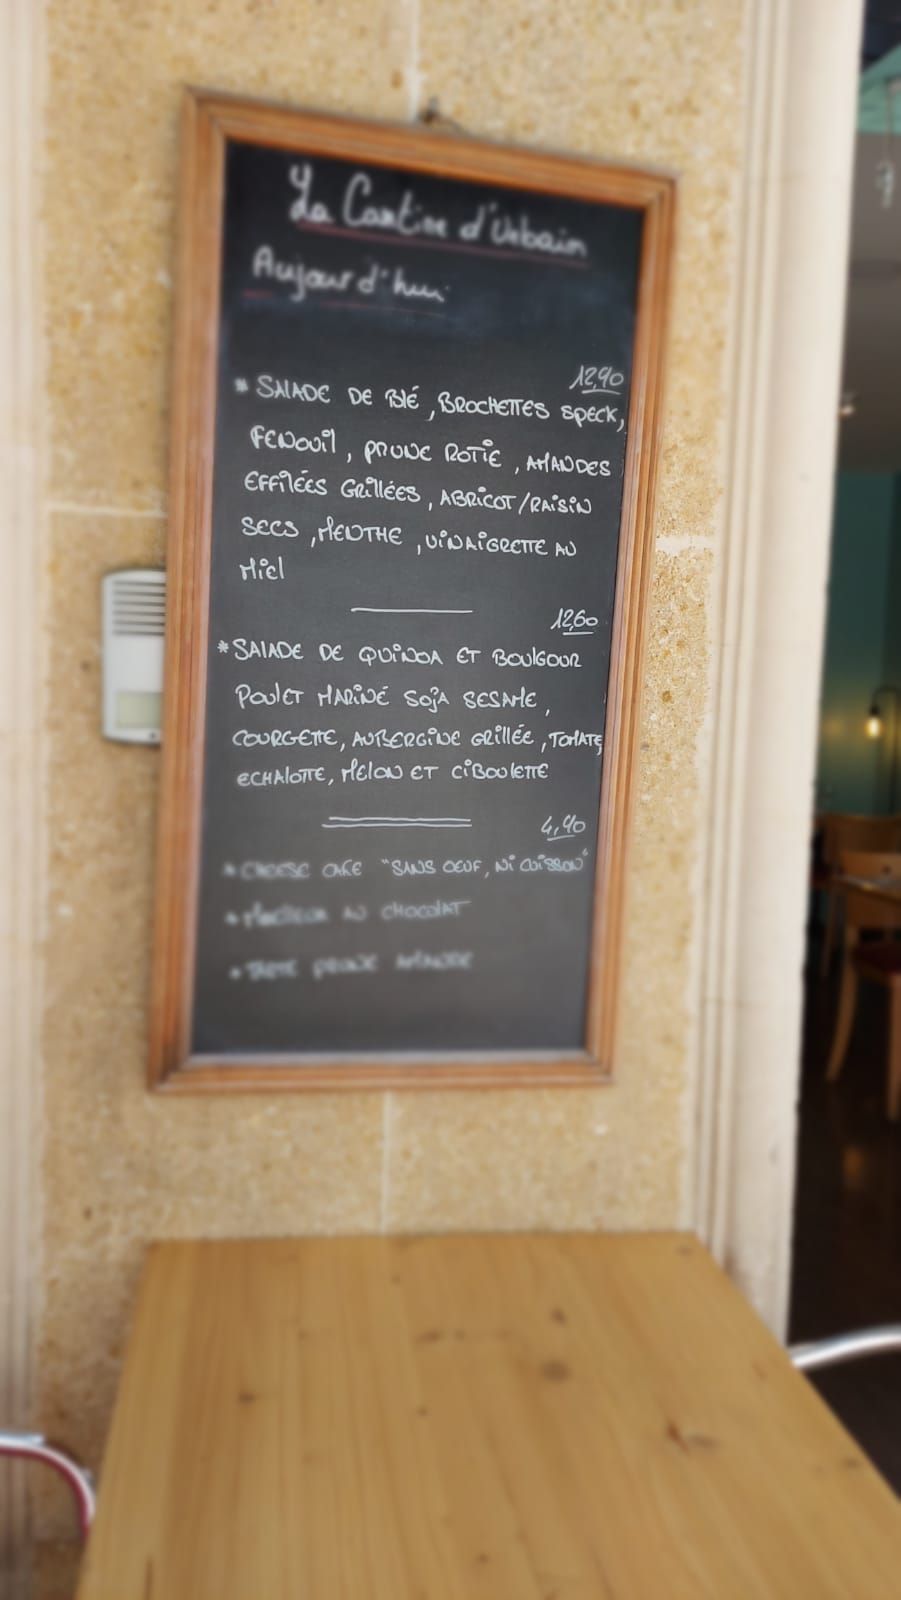 La Cantine d'Urbain
Aujourd'hui
12,90
* SALADE DE BLÉ, BROCHETTES SPECK,
FENOUIL, PRUNE ROTIE, AMANDES
EFFILÉES GRILLÉES, ABRICOT/RAISIN
SECS, MENTHE, VINAIGRETTE AU
MIEL
12,60
* SALADE DE QUINOA ET BOULGOUR
POULET MARINÉ SOJA SESAME,
COURGETTE, AUBERGINE GRILLÉE, TOMATE,
ECHALOTTE, MELON ET CIBOULETTE
4,90
* CHEESE CAKE "SANS OEUF, NI CUISSON"
* AU CHOCOLAT
* TARTE PRUNE AMANDE